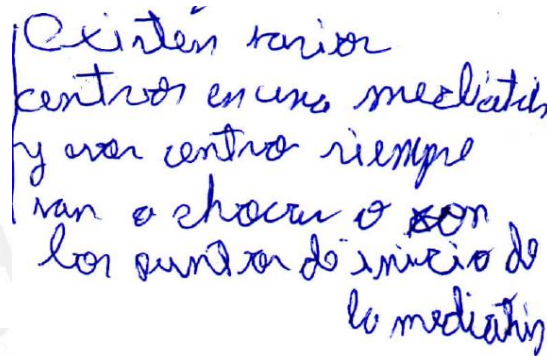 Existen varios
centros en una mediatriz
y esos centro siempre
van a chocar o son
los puntos de inicio de
la mediatriz